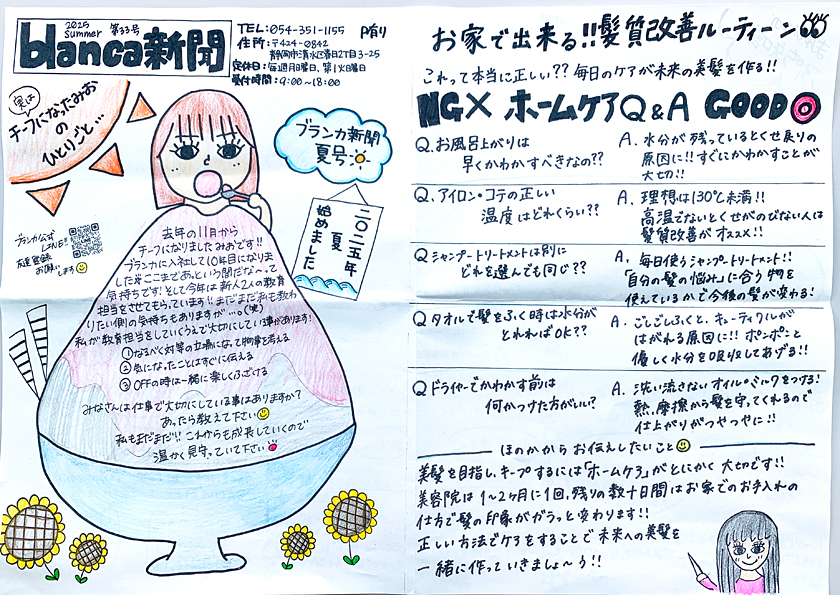 2025 Summer 第33号
blanca新聞
TEL:054-351-1155 P有り
住所:〒424-0842
静岡市清水区春日2丁目3-25
定休日:毎週月曜日、第1火曜日
受付時間:9:00~18:00
実は
チーフになったみお
の
ひとりごと…
ブランカ新聞
夏号
二〇二五年
夏
始めました
ブランカ公式
LINE!!
友達登録
お願い
します
去年の11月から
チーフになりましたみおです!!
ブランカに入社して10年目になりま
した☀ここまであっという間だな〜って
気持ちです!そして今年は新人2人の教育
担当をさせてもらっています!!まだまだ私も教わ
りたい側の気持ちもありますが…。(笑)
私が教育担当をしていくうえで大切にしている事があります!
①なるべく対等の立場になって物事を考える
②気になったことはすぐに伝える
③OFFの時は一緒に楽しくふざける
みなさんは仕事で大切にしている事はありますか?
あったら教えて下さい
私もまだまだ!!これからも成長していくので
温かく見守っていて下さい
お家で出来る!!髪質改善ルーティーン
これって本当に正しい??毎日のケアが未来の美髪を作る!!
NG× ホームケアQ&A GOOD◎
Q.お風呂上がりは
早くかわかすべきなの??
A.水分が残っているとくせ戻りの
原因に!!すぐにかわかすことが
大切!!
Q.アイロン・コテの正しい
温度はどれくらい??
A.理想は130℃未満!!
高温でないとくせがのびない人は
髪質改善がオススメ!!
Qシャンプートリートメントは別に
どれを選んでも同じ??
A.毎日使うシャンプートリートメント!!
「自分の髪の悩み」に合う物を
使えているかで今後の髪が変わる!
Qタオルで髪をふく時は水分が
とれればOK??
A.ごしごしふくと、キューティクルが
はがれる原因に!!ポンポンと
優しく水分を吸収してあげる!!
Qドライヤーでかわかす前は
何かつけた方がいい?
A.洗い流さないオイル・ミルクをつける!
熱、摩擦から髪を守ってくれるので
仕上がりがつやつやに!!
ほのかからお伝えしたいこと
美髪を目指し、キープするには「ホームケア」がとにかく大切です!!
美容院は1~2ヶ月に1回、残りの数十日間はお家でのお手入れの
仕方で髪の印象がガラッと変わります!!
正しい方法でケアをすることで未来への美髪を
一緒に作っていきましょ〜う!!